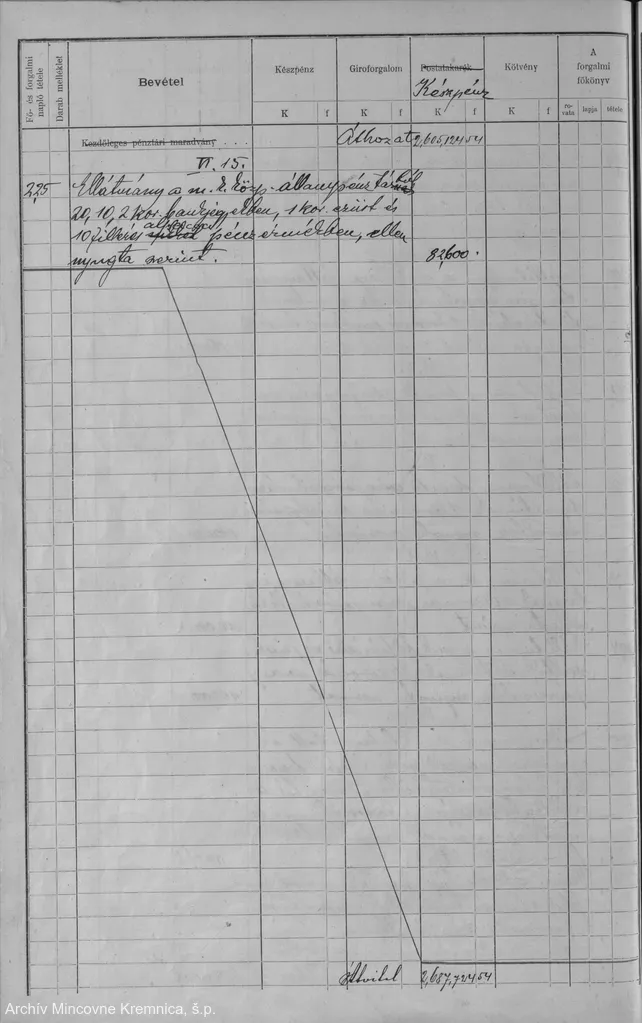 Fő- és forgalmi napló tétele
Darab melléklet
Bevétel
Készpénz
Giroforgalom
Postatakarék
Készpénz
Kötvény
A forgalmi főkönyv
K f K f K f K f rovata lapja tétele
Kezdőleges pénztári maradvány . . .
Áthozat 2,605,124 54
VI. 15.
225 Ellátmány a m. k. közp. állampénztár
20, 10, 2 kor. bankjegyekben, 1 kor. ezüst és
10 filléres pénzérmékben, ellen
nyugta szerint. 82,600 .
Átvitel 2,687,724 54
Archív Mincovne Kremnica, š.p.